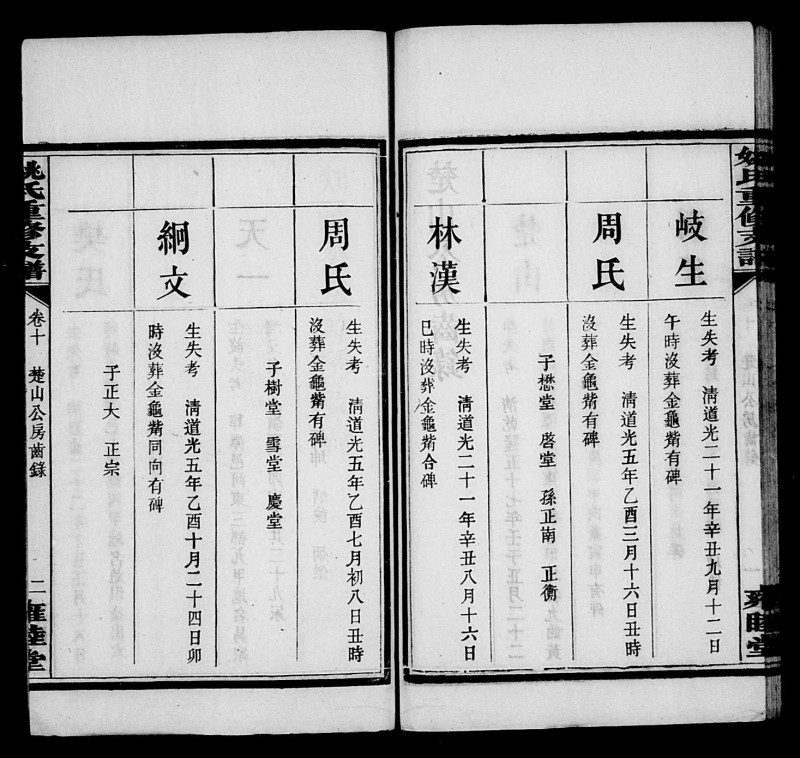 姚氏重修支譜
雍睦堂
岐生
生失考 清道光二十一年辛丑九月十二日
午時沒葬金龜觜有碑
周氏
生失考 清道光五年乙酉三月十六日丑時
沒葬金龜觜有碑
子懋堂 啓堂 孫正南 正衡
林漢
生失考 清道光二十一年辛丑八月十六日
巳時沒葬金龜觜合碑
周氏
生失考 清道光五年乙酉七月初八日丑時
沒葬金龜觜有碑
子樹堂 雪堂 慶堂
絅文
生失考 清道光五年乙酉十月二十四日卯
時沒葬金龜觜同向有碑
子正大 正宗
姚氏重修支譜
卷十 楚山公房齒錄
二
雍睦堂